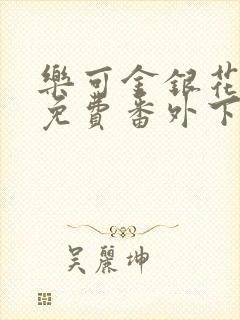 樂可金銀花
免費番外下
吳麗坤